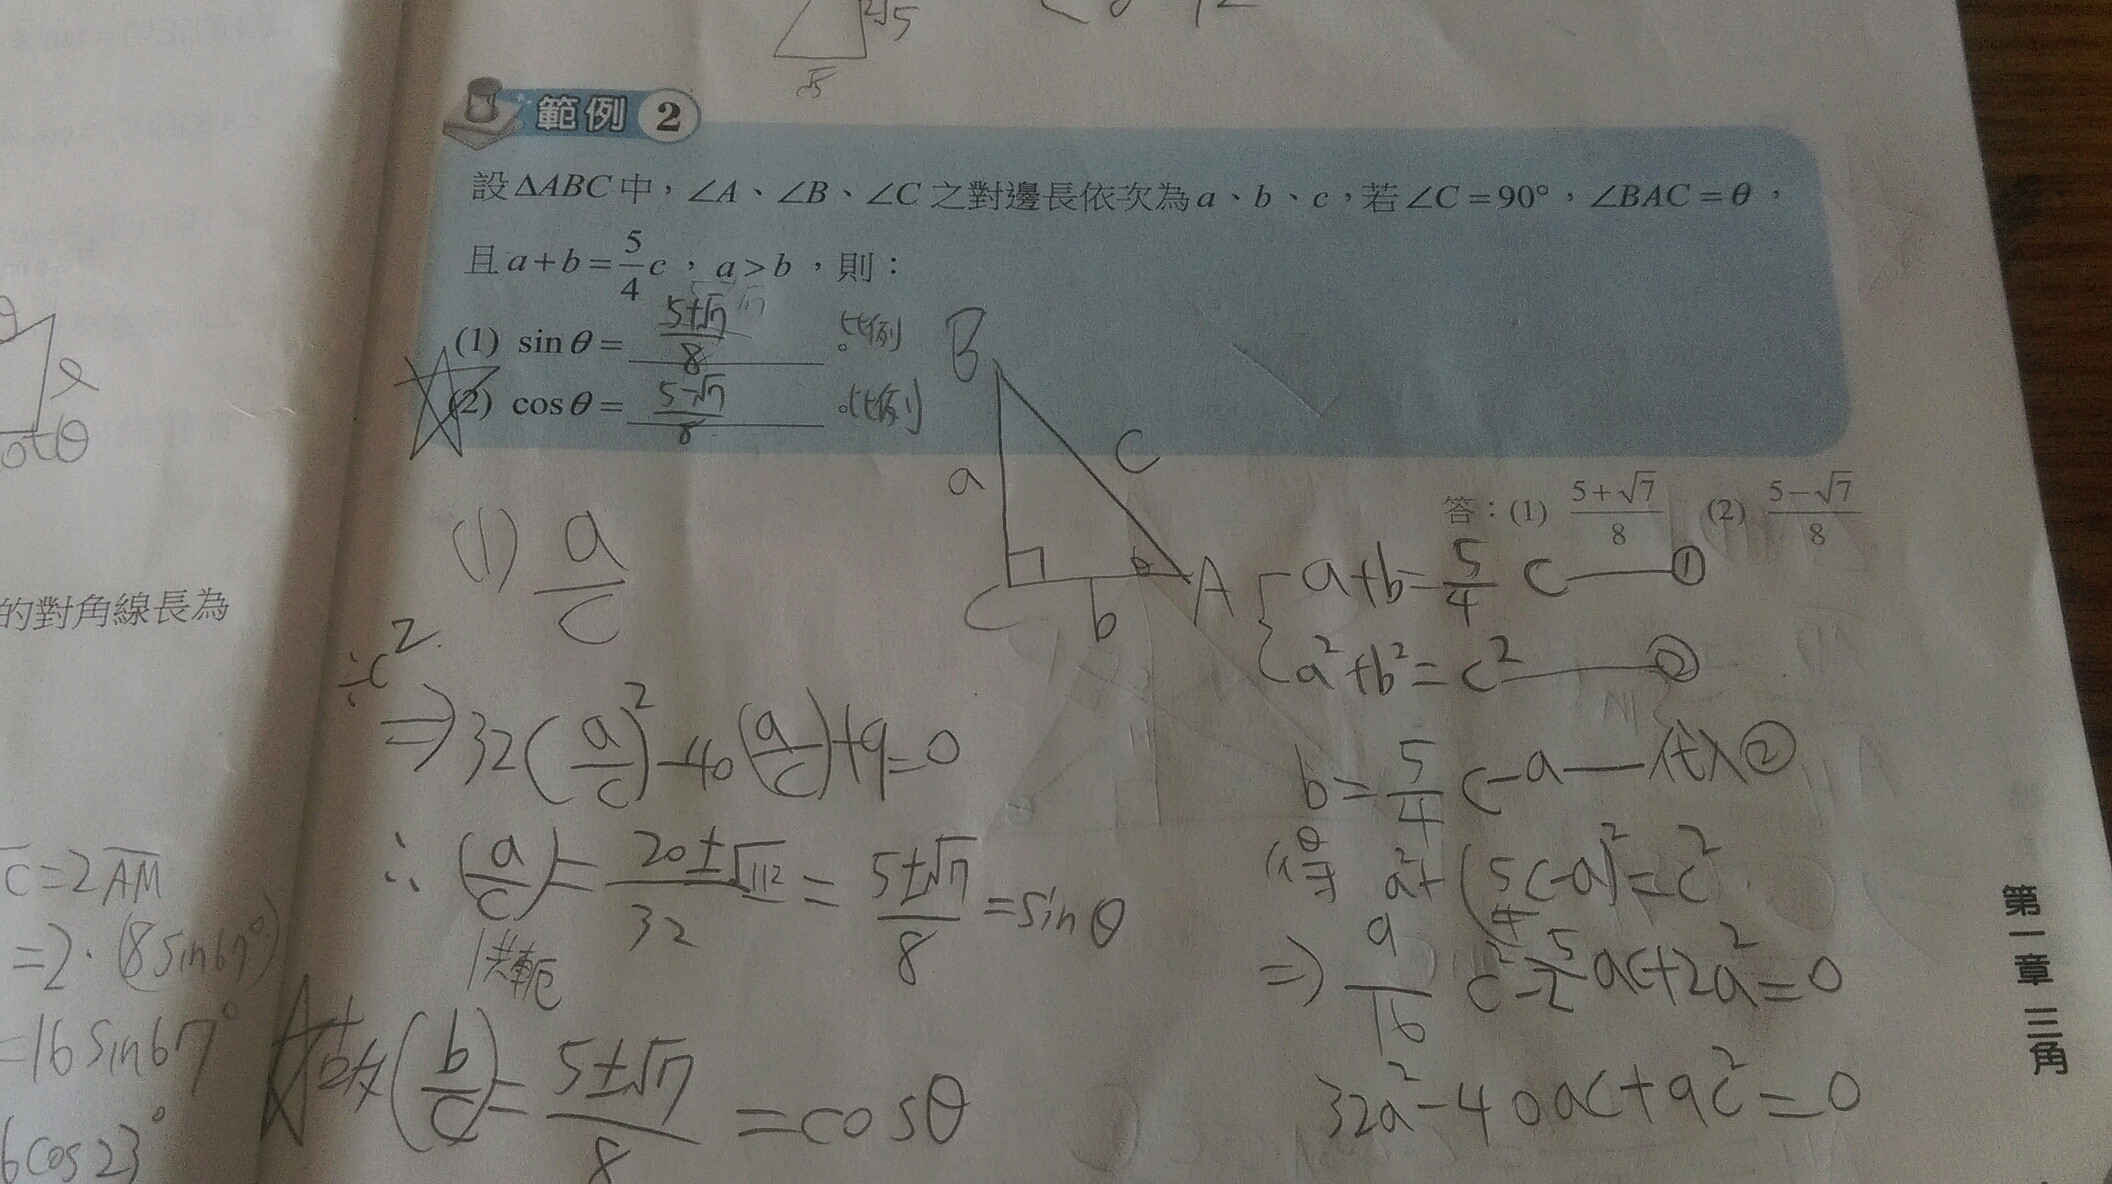 2√5
√5
範例 2
設△ABC中，∠A、∠B、∠C之對邊長依次為a、b、c，若∠C=90°，∠BAC=θ，
且a+b=5/4 c，a>b，則：
(1) sinθ= (5+√7)/8 。比例
(2) cosθ= (5-√7)/8 。比例
B
a
c
C
b
θ
A
答：(1) (5+√7)/8 (2) (5-√7)/8
(1) a/c
÷c²
⇒ 32(a/c)²-40(a/c)+9=0
∴ (a/c)= (20±√112)/32 = (5±√7)/8 =sinθ
共軛
故 (b/c)= (5±√7)/8 =cosθ
a+b=5/4 c ——①
a²+b²=c² ——②
b=5/4 c-a——代入②
得 a²+(5/4 c-a)²=c²
⇒ 9/16 c²-5/2 ac+2a²=0
32a²-40ac+9c²=0
第一章 三角
的對角線長為
C=2AM
=2·(8sin67°)
=16sin67°
6cos23°
otθ